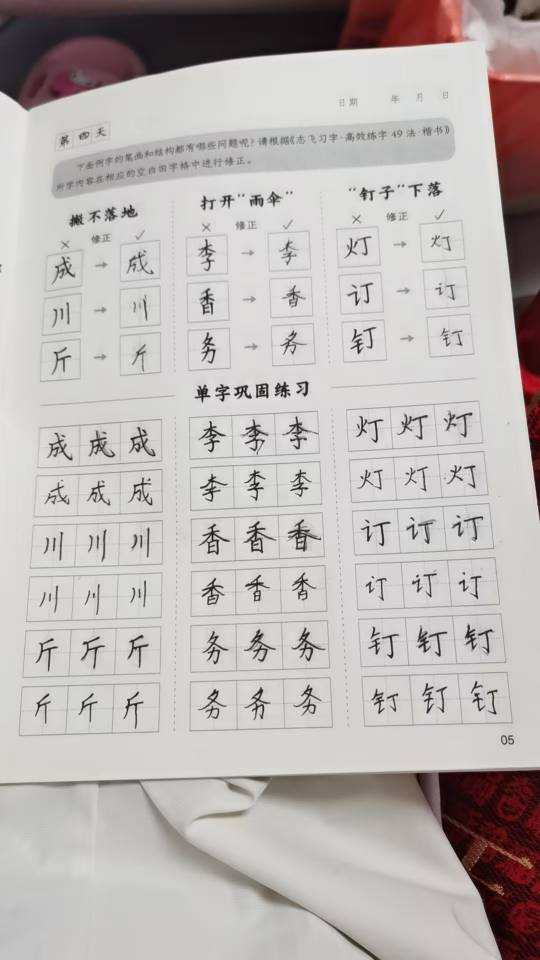 日期 年 月 日
第四天
下面例字的笔画和结构都有哪些问题呢？请根据《志飞习字·高效练字49法·楷书》
所学内容在相应的空白田字格中进行修正。
搬不落地 打开“雨伞” “钉子”下落
× 修正 ✓ × 修正 ✓ × 修正 ✓
成 → 成 李 → 李 灯 → 灯
川 → 川 香 → 香 订 → 订
斤 → 斤 务 → 务 钉 → 钉
单字巩固练习
成 成 成 李 李 李 灯 灯 灯
成 成 成 李 李 李 灯 灯 灯
川 川 川 香 香 香 订 订 订
川 川 川 香 香 香 订 订 订
斤 斤 斤 务 务 务 钉 钉 钉
斤 斤 斤 务 务 务 钉 钉 钉
05